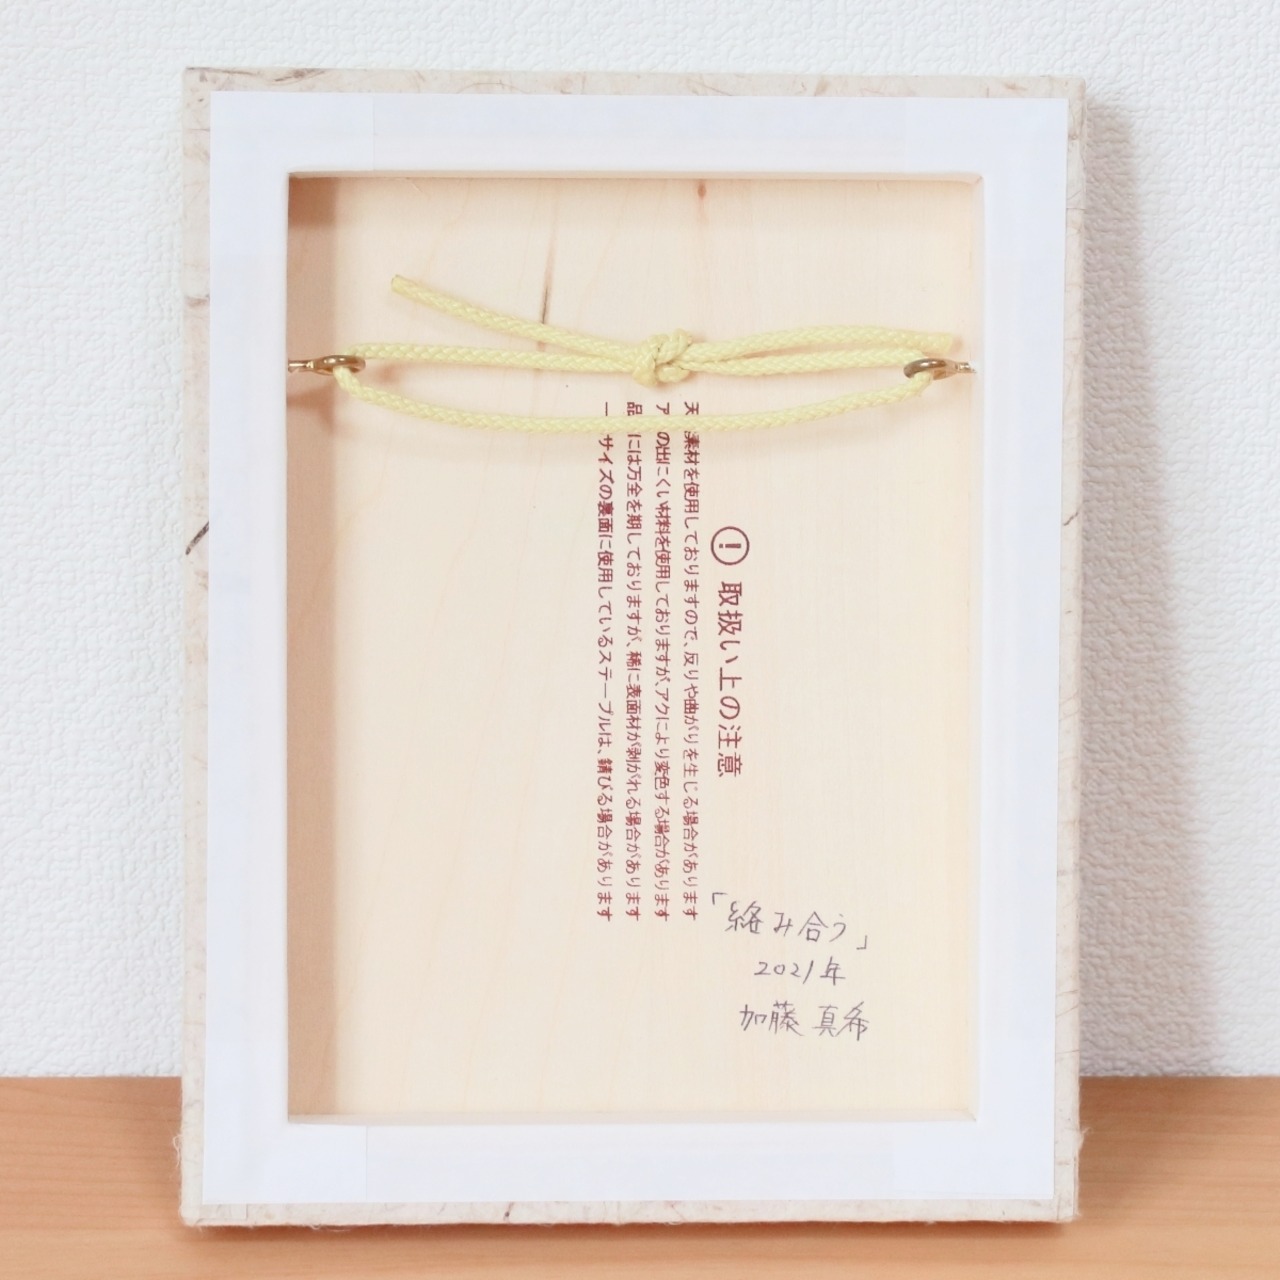 取扱い上の注意
天 素材を使用しておりますので、反りや曲がりを生じる場合があります
ア の出にくい材料を使用しておりますが、アクにより変色する場合があります
品 には万全を期しておりますが、稀に表面材が剥がれる場合があります
一 サイズの裏面に使用しているステープルは、錆びる場合があります
「絡み合う」
2021年
加藤 真希